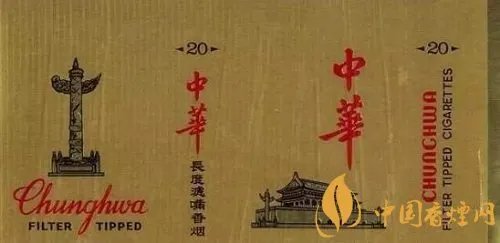 Chunghwa
FILTER TIPPED
20
中華
長度濾嘴香烟
中華
20
CHUNGHWA
FILTER TIPPED CIGARETTES
中国香烟网